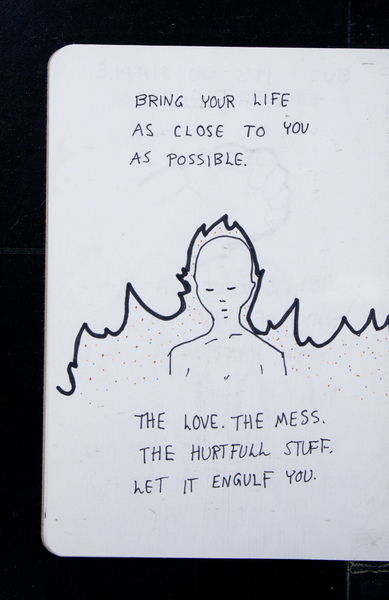 BRING YOUR LIFE
AS CLOSE TO YOU
AS POSSIBLE.
THE LOVE. THE MESS.
THE HURTFULL STUFF.
LET IT ENGULF YOU.